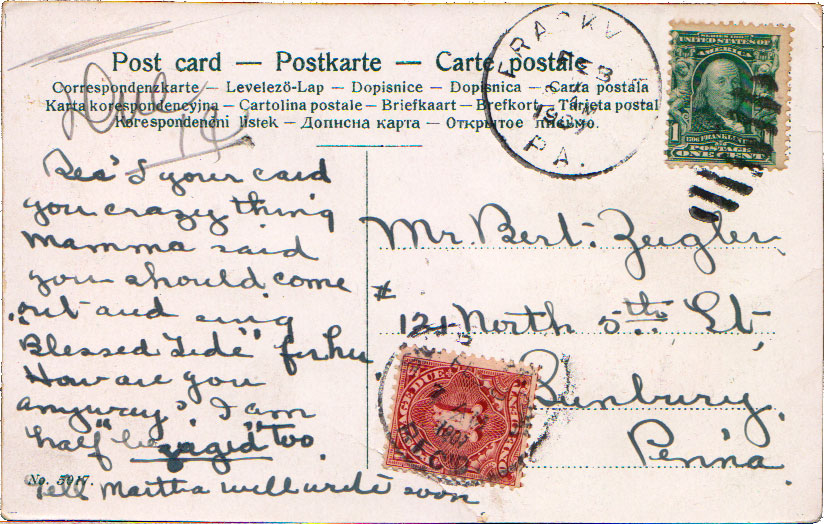 Post card — Postkarte — Carte postale
Correspondenzkarte — Levelező-Lap — Dopisnice — Dopisnica — Carta postala
Karta korespondencyjna — Cartolina postale — Briefkaart — Brefkort — Tarjeta postal
Korespondenční lístek — Дописна карта — Открытое письмо.
FRACKV
FEB
1907
PA.
UNITED STATES OF AMERICA
1
FRANKLIN
POSTAGE
ONE CENT
Rec'd your card
you crazy thing
Mamma said
you should come
out and sing
"Blessed Tide" for her.
How are you
anyway? I am
half too
No. 5917.
Tell Martha will write soon.
Mr. Bert. Zeigler
# 121 North 5th St,
Sunbury,
Penn'a
POSTAGE DUE
REC'D
1907